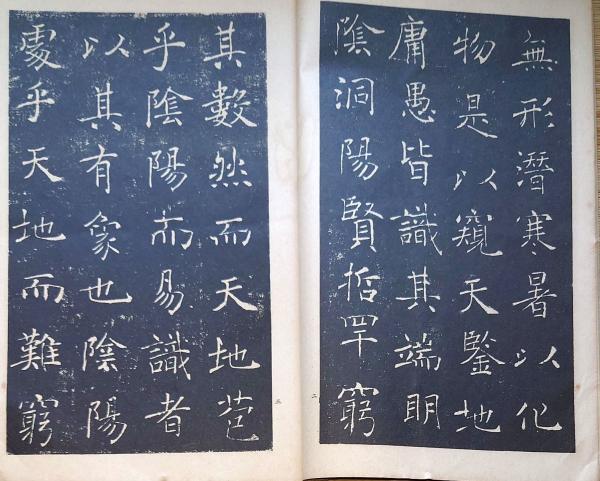 無形潛寒暑以化
物是以窺天鑒地
庸愚皆識其端明
陰洞陽賢哲罕窮
二
其數然而天地苞
乎陰陽而易識者
以其有象也陰陽
處乎天地而難窮
三